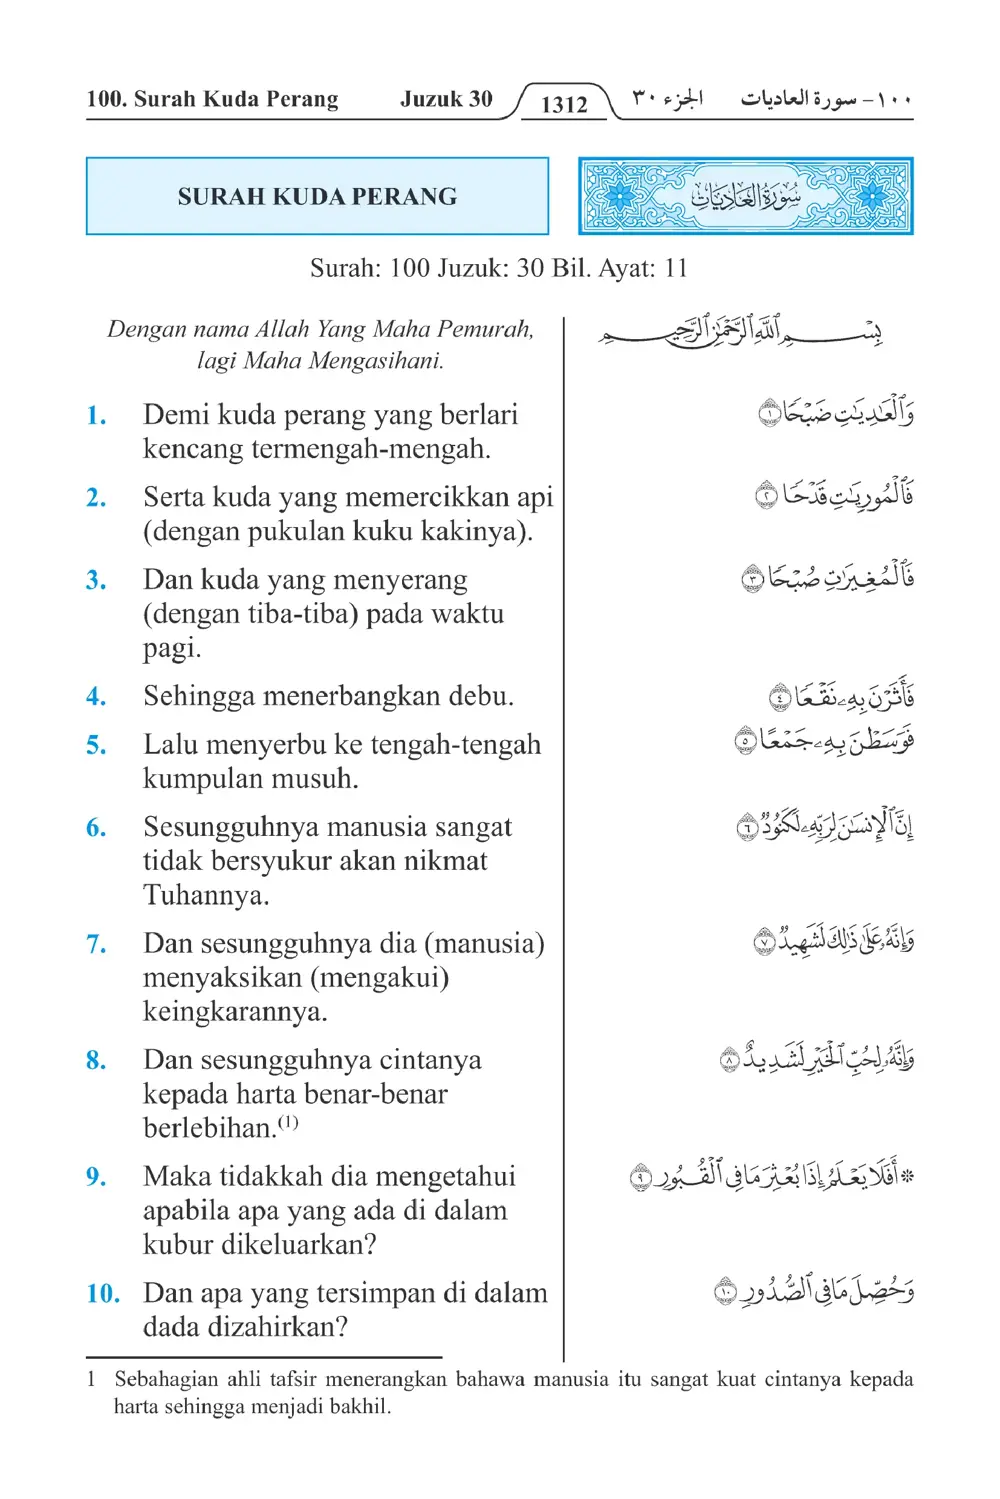 100. Surah Kuda Perang Juzuk 30 1312 الجزء ٣٠ ١٠٠ - سورة العاديات
SURAH KUDA PERANG
سُورَةُ العَادِيَاتِ
Surah: 100 Juzuk: 30 Bil. Ayat: 11
Dengan nama Allah Yang Maha Pemurah,
lagi Maha Mengasihani.
بِسْمِ ٱللَّهِ ٱلرَّحْمَٰنِ ٱلرَّحِيمِ
1. Demi kuda perang yang berlari
kencang termengah-mengah.
وَٱلْعَٰدِيَٰتِ ضَبْحًا ١
2. Serta kuda yang memercikkan api
(dengan pukulan kuku kakinya).
فَٱلْمُورِيَٰتِ قَدْحًا ٢
3. Dan kuda yang menyerang
(dengan tiba-tiba) pada waktu
pagi.
فَٱلْمُغِيرَٰتِ صُبْحًا ٣
4. Sehingga menerbangkan debu.
فَأَثَرْنَ بِهِۦ نَقْعًا ٤
5. Lalu menyerbu ke tengah-tengah
kumpulan musuh.
فَوَسَطْنَ بِهِۦ جَمْعًا ٥
6. Sesungguhnya manusia sangat
tidak bersyukur akan nikmat
Tuhannya.
إِنَّ ٱلْإِنسَٰنَ لِرَبِّهِۦ لَكَنُودٌ ٦
7. Dan sesungguhnya dia (manusia)
menyaksikan (mengakui)
keingkarannya.
وَإِنَّهُۥ عَلَىٰ ذَٰلِكَ لَشَهِيدٌ ٧
8. Dan sesungguhnya cintanya
kepada harta benar-benar
berlebihan.(1)
وَإِنَّهُۥ لِحُبِّ ٱلْخَيْرِ لَشَدِيدٌ ٨
9. Maka tidakkah dia mengetahui
apabila apa yang ada di dalam
kubur dikeluarkan?
۞ أَفَلَا يَعْلَمُ إِذَا بُعْثِرَ مَا فِى ٱلْقُبُورِ ٩
10. Dan apa yang tersimpan di dalam
dada dizahirkan?
وَحُصِّلَ مَا فِى ٱلصُّدُورِ ١٠
1 Sebahagian ahli tafsir menerangkan bahawa manusia itu sangat kuat cintanya kepada
harta sehingga menjadi bakhil.